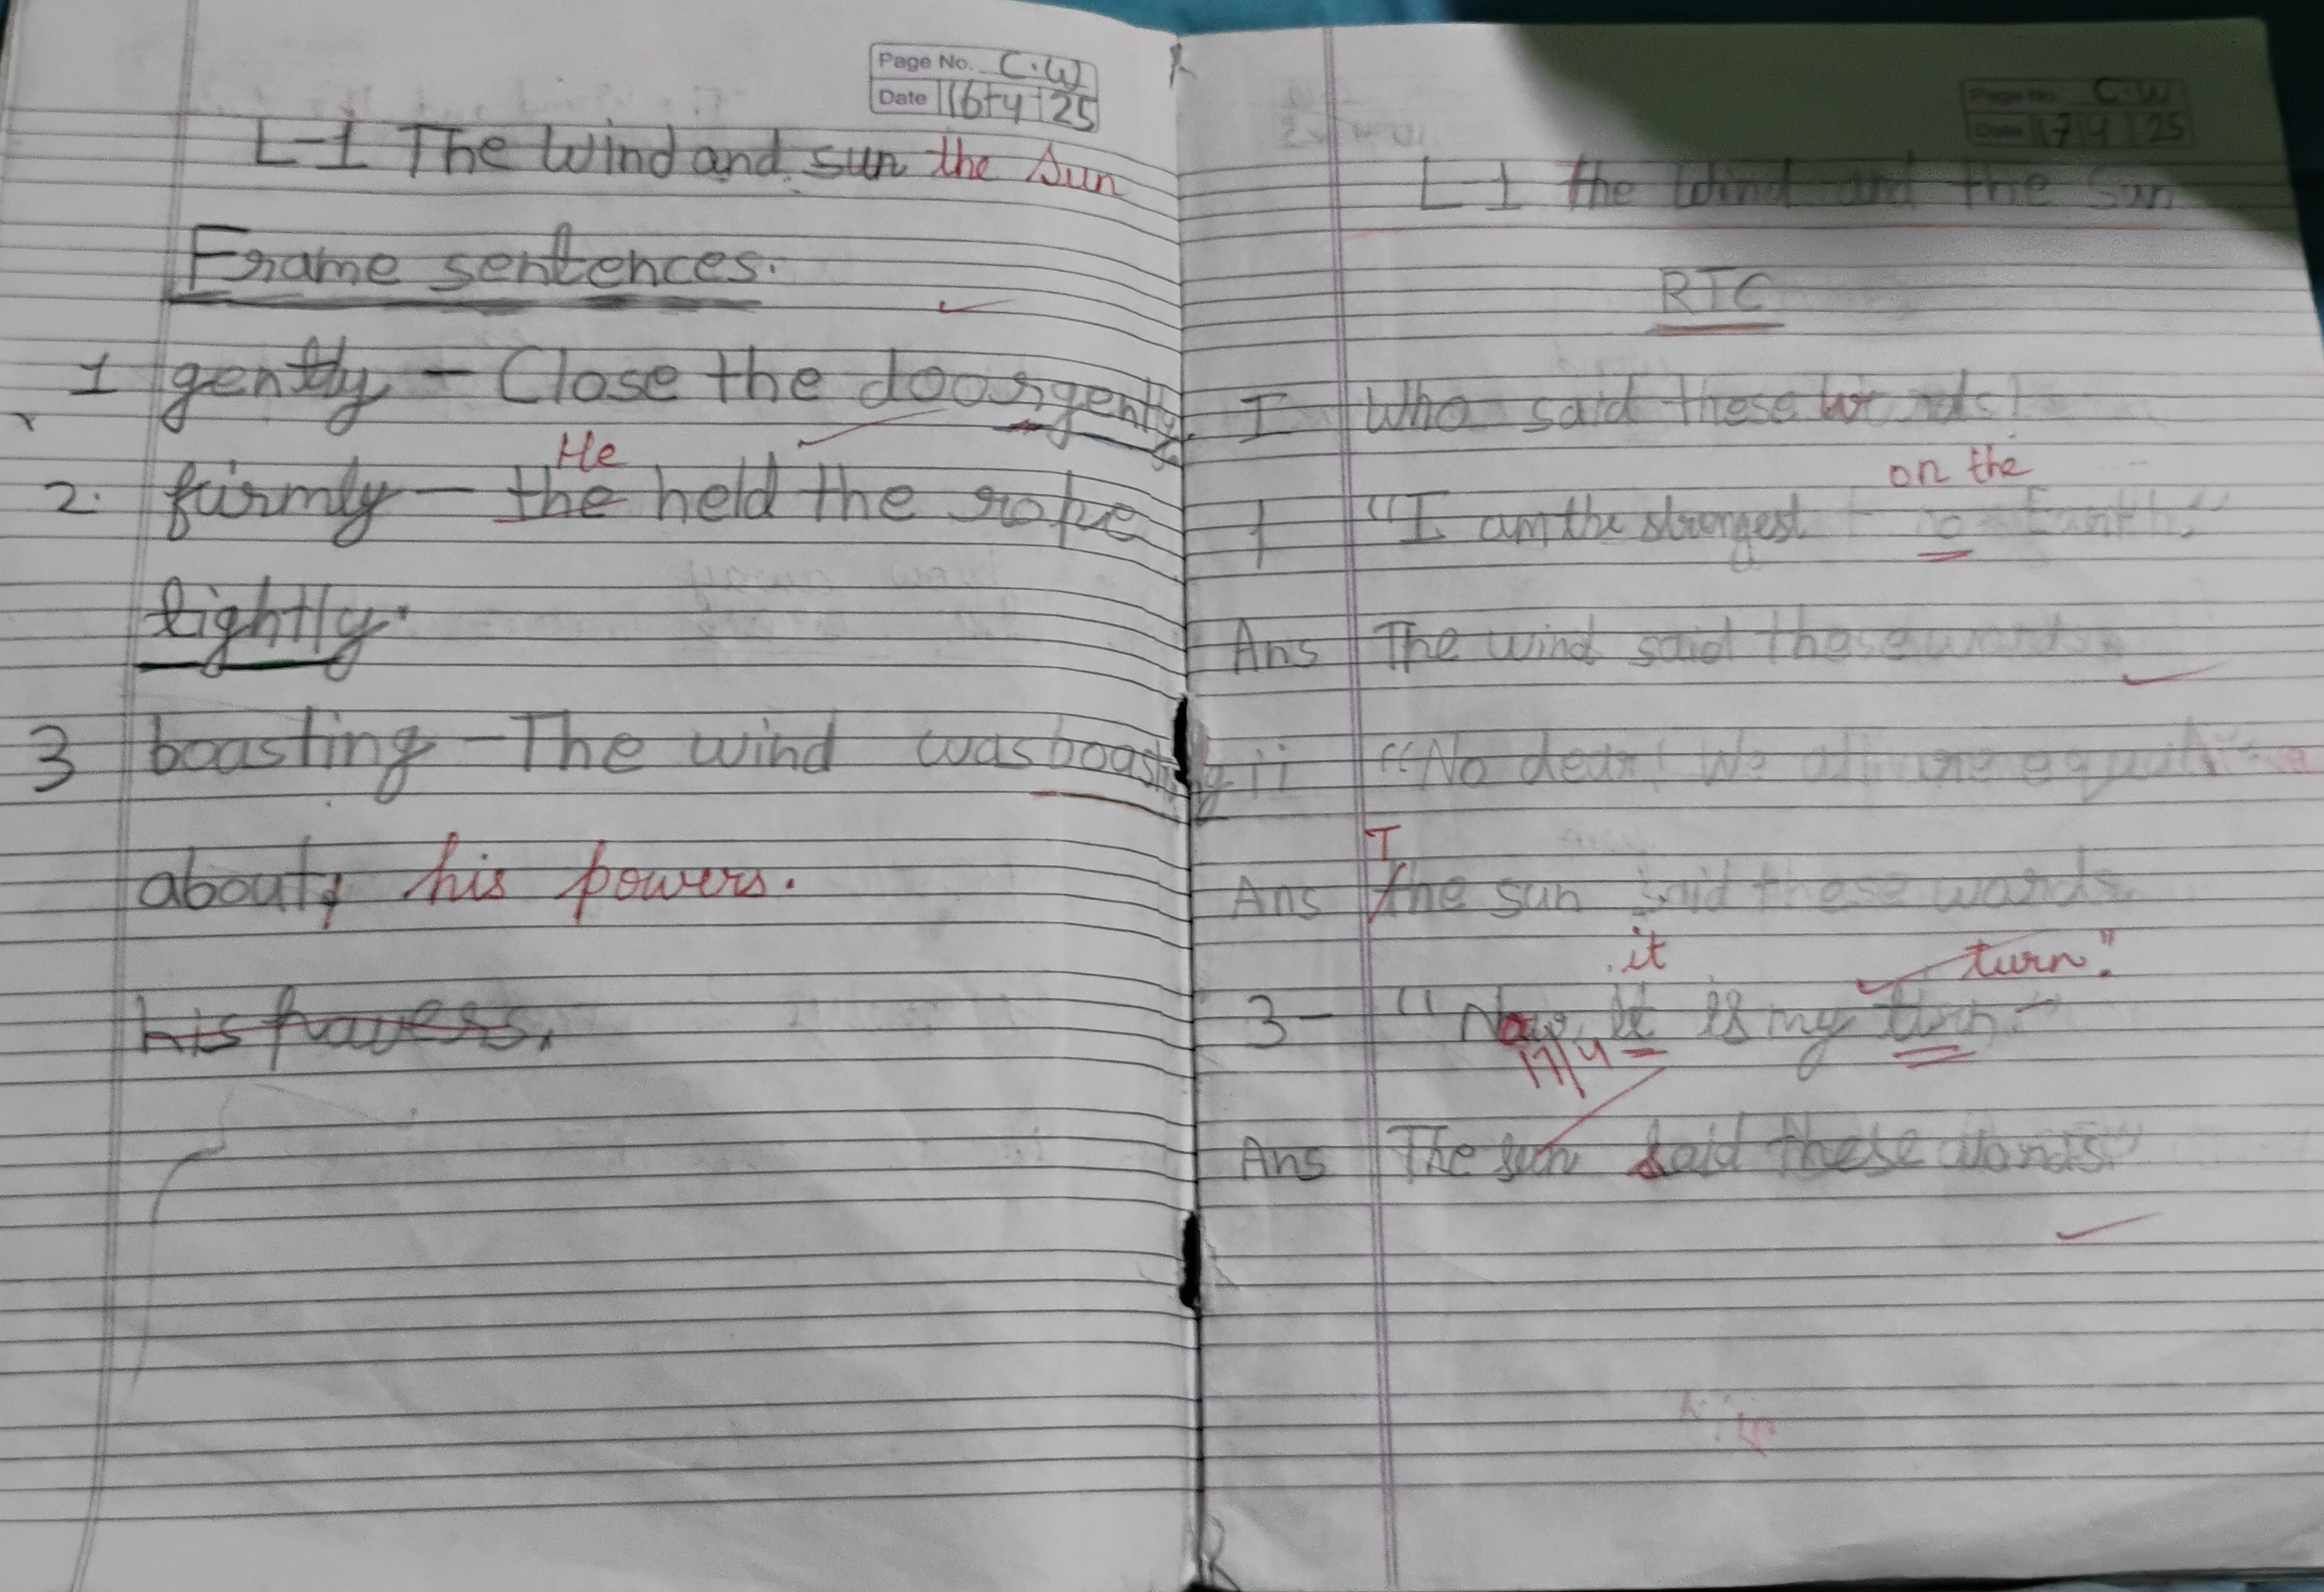 Page No. C.W
Date 16 4 25
L-1 The Wind and sun the Sun
Frame sentences.
1 gently - Close the door gently.
He
2. firmly - the held the rope
tightly.
3 boasting - The wind was boasting
about, his powers.
his
Page No. C.W
Date 17 4 25
L-1 The Wind and the Sun
RTC
I Who said these words
on the
1 "I am the strongest Earth."
Ans The wind said these words.
ii "No dear! We all are equal
T
Ans the sun said these words.
it turn."
3- "Now, it is my
17/4
Ans The sun said these words"